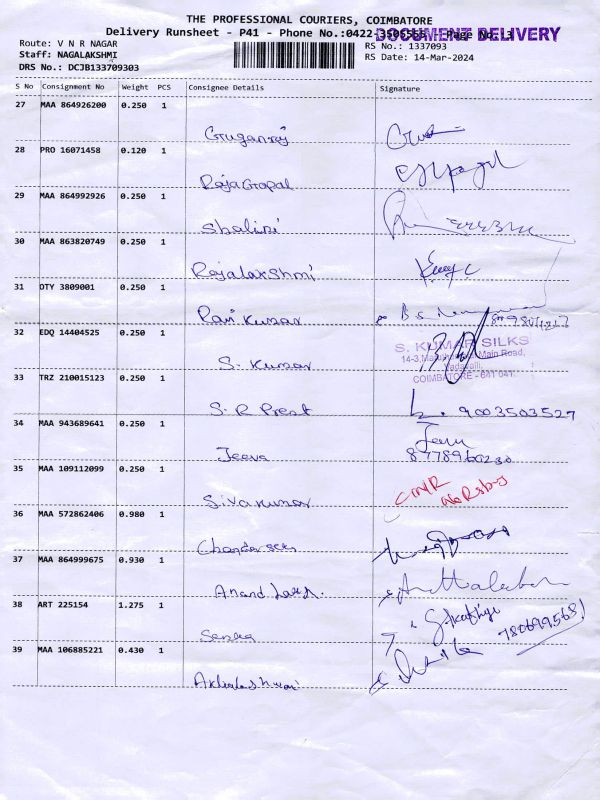 THE PROFESSIONAL COURIERS, COIMBATORE
Delivery Runsheet - P41 - Phone No.:0422- Page No.:3
DOCUMENT DELIVERY
Route: V N R NAGAR
RS No.: 1337093
Staff: NAGALAKSHMI
RS Date: 14-Mar-2024
DRS No.: DCJB133709303
S No Consignment No Weight PCS Consignee Details Signature
27 MAA 864926200 0.250 1
Guganraj
28 PRO 16071458 0.120 1
RajaGopal
29 MAA 864992926 0.250 1
Shalini
30 MAA 863820749 0.250 1
Rajalakshmi
31 DTY 3809001 0.250 1
Ravi Kumar
32 EDQ 14404525 0.250 1
S. KUMAR SILKS
Main Road,
S. Kumar
COIMBATORE - 641 041.
33 TRZ 210015123 0.250 1
S.R Prest 9003503527
34 MAA 943689641 0.250 1
Jeeva 8778960230
35 MAA 109112099 0.250 1
Sivakumar
36 MAA 572862406 0.980 1
Chandarsekr
37 MAA 864999675 0.930 1
38 ART 225154 1.275 1
39 MAA 106885221 0.430 1